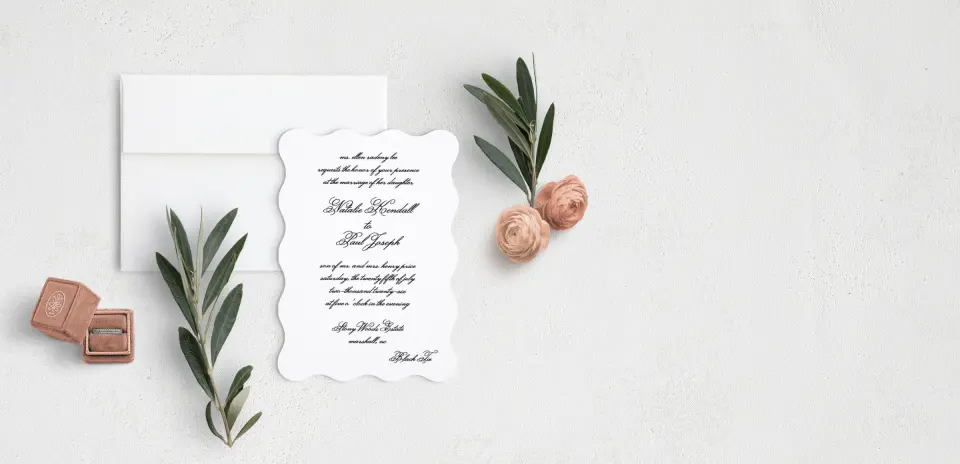 ms. ellen sadony lee
requests the honor of your presence
at the marriage of her daughter
Natalie Kendall
to
Paul Joseph
son of mr. and mrs. henry price
saturday, the twenty fifth of july
two-thousand twenty-six
at five o'clock in the evening
Stony Woods Estate
marshall, nc
Black Tie